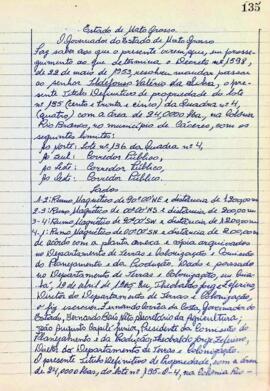 135
Estado de Mato Grosso
O Governador do Estado de Mato Grosso
Faz saber aos que o presente virem, que, em prosse-
guimento ao que determina o Decreto nº 1.598,
de 22 de maio de 1953, resolveu mandar passar
ao senhor Ildefonso Valério da Silva, o pre-
sente Título Definitivo de propriedade do lote
nº 135 (cento e trinta e cinco) da Quadra nº 4,
(quatro) com a área de 24,0000 Has, na Colônia
Rio Branco, no município de Cáceres, com os
seguintes limites:
Ao norte: Lote nº 136 da Quadra nº 4,
Ao sul: Corredor Público,
Ao leste: Corredor Público,
Ao Corredor Público,
Lados
1-2: Rumo Magnético de 90º00'NE e distância de 1200,00m
2-3: Rumo Magnético de e distância de 200,00m
3-4: Rumo Magnético de e distância de 1200,00m
4-1: Rumo Magnético de e distância de 200,00m
de acordo com a planta anexa e cópia arquivadas
no Departamento de Terras e Colonização e Comissão
de Planejamento e da Produção. Dado e passado
no Departamento de Terras e Colonização, em Cuia-
bá, 19 de abril de 1965. Eu,
Diretor do Departamento de Terras e Colonização,
o fiz escrever. Fernando Corrêa da Costa, Governador do
Estado, Bernardo Secretário da Agricultura;
João Augusto Júnior, Presidente da Comissão de
Planejamento e da Produção;
Diretor do Departamento de Terras e Colonização.
O presente Título Definitivo de Propriedade, com a área
de 24,0000 Has, do lote nº 135, Q-4, na Colônia Rio-